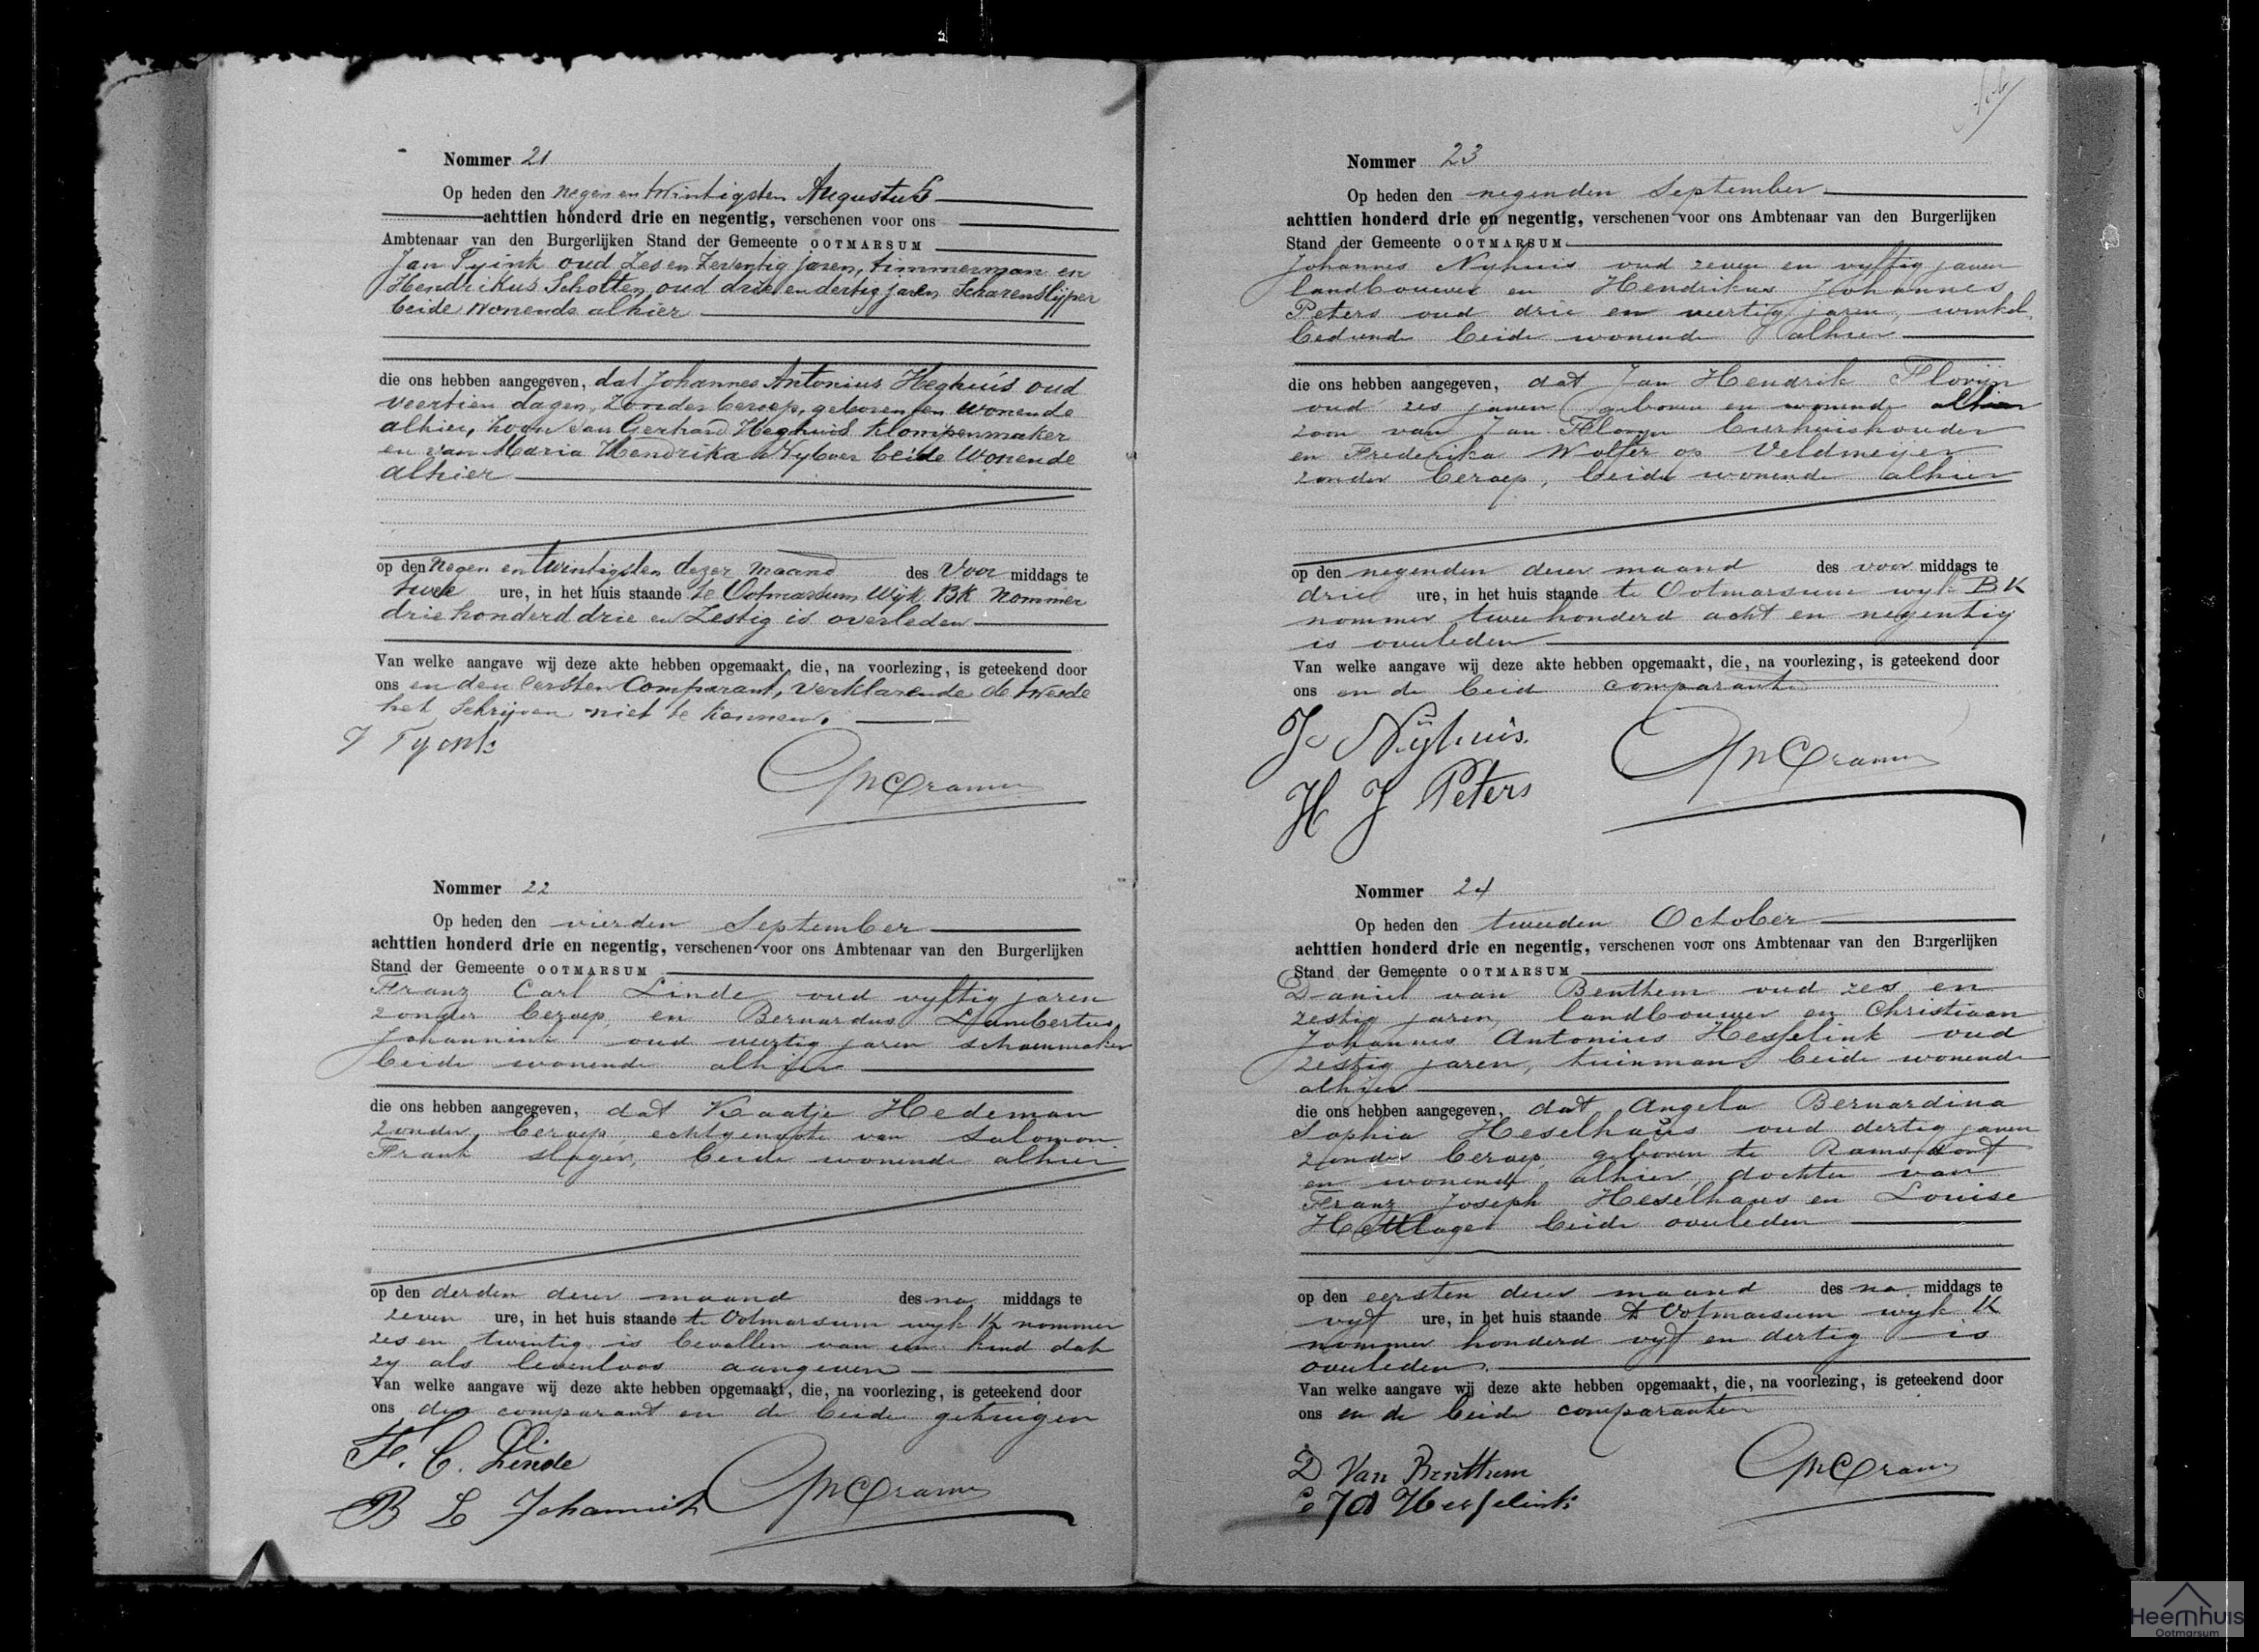 Nommer 21
Op heden den negen en twintigsten Augustus
achttien honderd drie en negentig, verschenen voor ons
Ambtenaar van den Burgerlijken Stand der Gemeente OOTMARSUM
Jan Tyink oud Zes en Zeventig jaren, timmerman en
Hendrikus Scholten oud drie en dertig jaren Scharenslijper
beide wonende alhier
die ons hebben aangegeven, dat Johannes Antonius Heghuis oud
veertien dagen, Zonder beroep, geboren en wonende
alhier, Zoon van Gerhard Heghuis Klompenmaker
en van Maria Hendrika beide Wonende
alhier
op den Negen en twintigsten dezer maand des Voor middags te
twee ure, in het huis staande te Ootmarsum Wijk BK Nommer
driehonderd drie en Zestig is overleden
Van welke aangave wij deze akte hebben opgemaakt, die, na voorlezing, is geteekend door
ons en den eersten Comparant, verklarende de tweede
het Schrijven niet te kennen.
J Tyink
Cramer
Nommer 22
Op heden den vierden September
achttien honderd drie en negentig, verschenen voor ons Ambtenaar van den Burgerlijken
Stand der Gemeente OOTMARSUM
Franz Carl Linde oud vyftig jaren
zonder beroep, en Bernardus Lambertus
Johannink oud veertig jaren schoenmaker
beide wonende alhier
die ons hebben aangegeven, dat Kaatje Hedeman
zonder beroep, echtgenoote van Salomon
Frank slager, beide wonende alhier
op den derden dezer maand des na middags te
zeven ure, in het huis staande te Ootmarsum wyk K nommer
zes en twintig is bevallen van een kind dat
zy als levenloos aangeven
Van welke aangave wij deze akte hebben opgemaakt, die, na voorlezing, is geteekend door
ons den comparant en de beide getuigen
F. C. Linde
B L Johannink
Cramer
Nommer 23
Op heden den negenden September
achttien honderd drie en negentig, verschenen voor ons Ambtenaar van den Burgerlijken
Stand der Gemeente OOTMARSUM
Johannes Nyhuis oud zeven en vyftig jaren
landbouwer en Hendrikus Johannes
Peters oud drie en veertig jaren, winkel
bediende beide wonende alhier
die ons hebben aangegeven, dat Jan Hendrik Florijn
oud zes jaren geboren en wonende alhier
zoon van Jan Floryn bierhuishouder
en Frederika Wolter op Veldmeijer
zonder beroep, beide wonende alhier
op den negenden dezer maand des voor middags te
drie ure, in het huis staande te Ootmarsum wyk BK
nommer twee honderd acht en negentig
is overleden
Van welke aangave wij deze akte hebben opgemaakt, die, na voorlezing, is geteekend door
ons en de beide comparanten
Js Nijhuis.
H J Peters
Cramer
Nommer 24
Op heden den tweeden October
achttien honderd drie en negentig, verschenen voor ons Ambtenaar van den Burgerlijken
Stand der Gemeente OOTMARSUM
Daniel van Benthem oud zes en
zestig jaren, landbouwer en Christiaan
Johannes Antonius Hesselink oud
zestig jaren, tuinman, beide wonende
alhier
die ons hebben aangegeven, dat Angela Bernardina
Sophia Heselhaus oud dertig jaren
zonder beroep geboren te Ramsdorf
en wonende alhier, dochter van
Franz Joseph Heselhaus en Louise
Hettlager beide overleden
op den eersten dezer maand des na middags te
vyf ure, in het huis staande te Ootmarsum wyk K
nommer honderd vyf en dertig is
overleden.
Van welke aangave wij deze akte hebben opgemaakt, die, na voorlezing, is geteekend door
ons en de beide comparanten
D. Van Benthem
C J A Hesselink
Cramer
Heemhuis
Ootmarsum